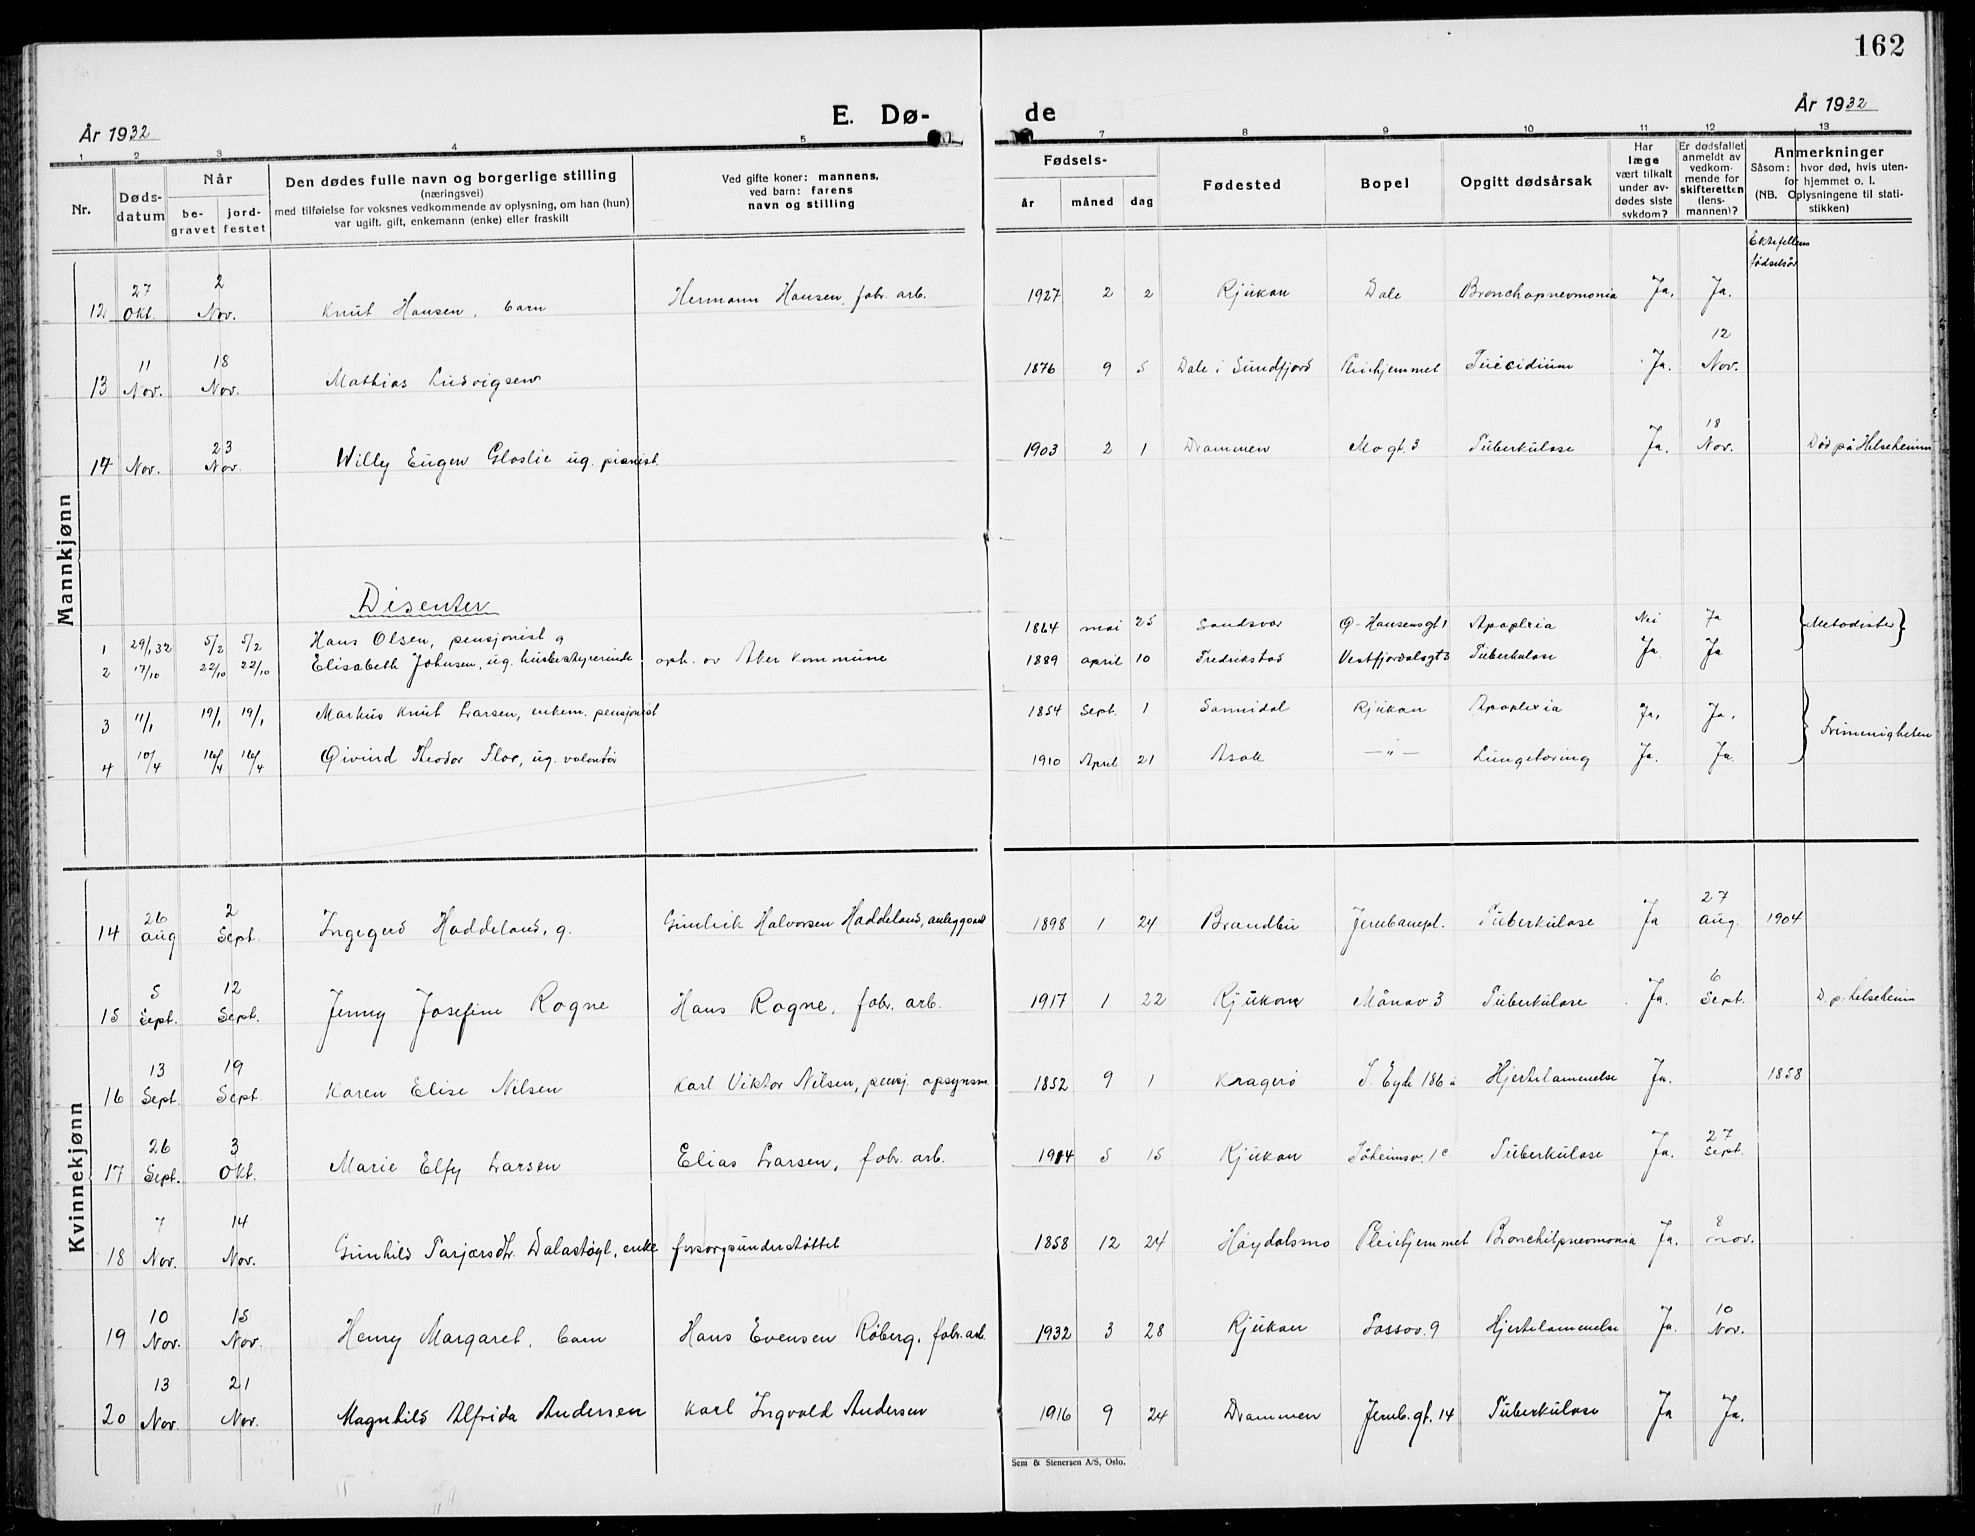 162
E. Dø- de
År 1932 År 1932
1 2 3 4 5 7 8 9 10 11 12 13
Nr. Døds-datum Når be-gravet jord-festet Den dødes fulle navn og borgerlige stilling (næringsvei) med tilføielse for voksnes vedkommende av oplysning, om han (hun) var ugift, gift, enkemann (enke) eller fraskilt Ved gifte koner: mannens, ved barn: farens navn og stilling Fødsels- år måned dag Fødested Bopel Opgitt dødsårsak Har læge vært tilkalt under av-dødes siste sykdom? Er dødsfallet anmeldt av vedkom-mende for skifteretten (lens-mannen)? Anmerkninger Såsom: hvor død, hvis uten-for hjemmet o. l. (NB. Oplysningene til stati-stikken)
Ektefellens fødselsår
Mannkjønn
12 27 Okt. 2 Nov. Knut Hansen, barn Hermann Hansen, fabr. arb. 1927 2 2 Rjukan Dale Bronchopnevmonia Ja. Ja.
13 11 Nov. 18 Nov. Mathias Ludvigsen 1876 9 5 Dale i Sundfjord Pleiehjemmet Suicidium Ja. 12 Nov.
14 Nov. 23 Nov. Willy Eugen Gloslie ug. pianist. 1903 2 1 Drammen Mogt. 3 Tuberkulose Ja. 18 Nov. Død på Helseheimn
Disenter
1 29/1 32 5/2 5/2 Hans Olsen, pensjonist g 1864 mai 25 Sandsvær Ø-Hansensgt 1 Apoplexia Nei Ja } Metodister }
2 17/10 22/10 22/10 Elisabeth Johnsen, ug. husbestyrerinde oph. av Aker kommune 1889 april 10 Fredrikstad Vestfjordalsgt 3 Tuberkulose Ja Ja
3 11/1 19/1 19/1 Markus Knut Larsen, enkem. pensjonist 1854 Sept. 1 Sannidal Rjukan Apoplexia Ja, Ja, } Frimenigheten
4 10/4 16/4 16/4 Øivind Theodor Flor, ug. volontør 1910 April 21 Asak —"— Lungetæring Ja. Ja.
Kvinnekjønn
14 26 aug 2 Sept. Ingegerd Haddeland, g. Gunleik Halvorsen Haddeland, anleggsarb 1898 1 24 Brandbu Jernbanepl. Tuberkulose Ja 27 aug. 1904
15 5 Sept. 12 Sept. Jenny Josefine Rogne Hans Rogne, fabr. arb. 1917 1 22 Rjukan Månav 3 Tuberkulose Ja. 6 Sept. D. p. helseheim
16 13 Sept. 19 Sept Karen Elise Nilsen Karl Viktor Nilsen, pensj. opsynsm. 1852 9 1 Kragerø S. Eyde 186 a Hjertelammelse Ja. 1858
17 26 Sept. 3 Okt. Marie Elfy Larsen Elias Larsen, fabr. arb. 1914 5 15 Rjukan Såheimsv. 1c Tuberkulose Ja. 27 Sept.
18 7 Nov. 14 Nov. Gunhild Tarjersdtr. Dalastøyl, enke forsorgsunderstøttet 1858 12 24 Høydalsmo Pleiehjemmet Bronchitpnevmonia Ja. 8 nov.
19 10 Nov. 15 Nov. Henny Margaret, barn Hans Evensen Røberg, fabr. arb. 1932 3 28 Rjukan Fossov. 9 Hjertelammelse Ja. 10 Nov.
20 13 Nov. 21 Nov. Magnhild Alfrida Andersen Karl Ingvald Andersen 1916 9 24 Drammen Jernb. gt. 14 Tuberkulose Ja Ja.
Sem & Stenersen A/S, Oslo.